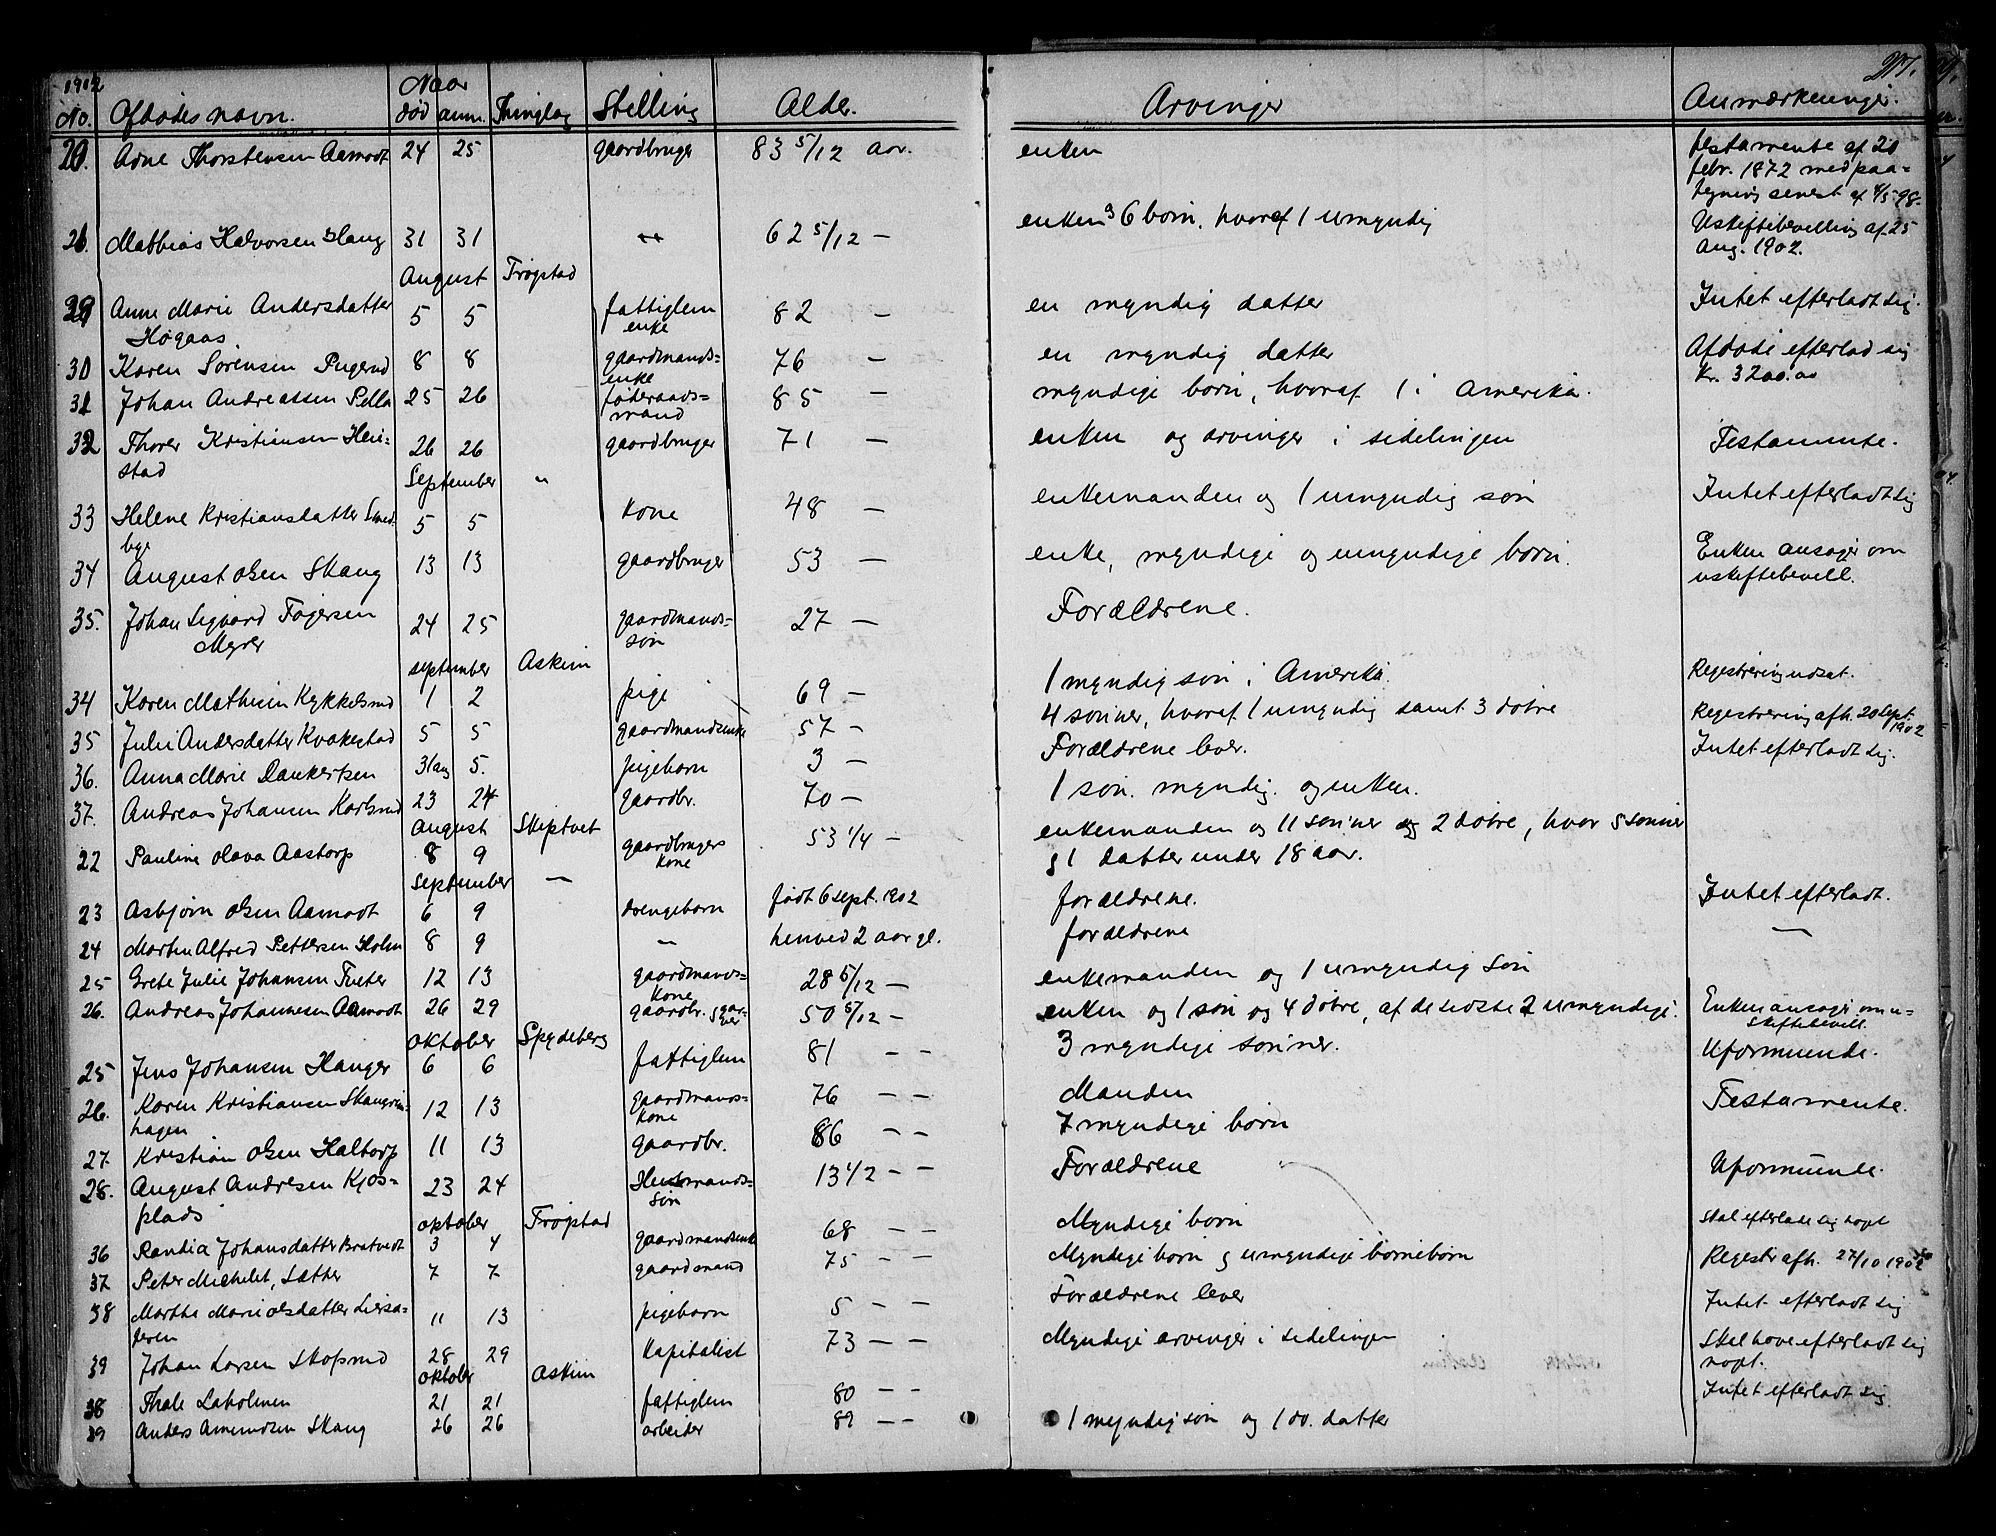 1902 Naar
No. Afdødes navn. død anm. Thinglag Stelling Alder. Arvinger Anmærkninger.
20. Arne Thorstensen Aamodt 24 25 gaardbruger 83 5/12 aar. enken testamente af 20
febr. 1872 med paa-
tegning senest af
21. Mathias Halvorsen Haug 31 31 62 5/12 — enken og 6 børn, hvoraf 1 umyndig Uskiftebevilling af 25
Aug. 1902.
August Trøgstad
29 Anne Marie Andersdatter 5 5 fattiglem 82 — en myndig datter Intet efterladt sig.
Høgaas enke
30 Karen Sørensen 8 8 gaardmands= 76 — en myndig datter Afdøde efterlod sig
enke kr. 3200.00
31 Johan Andreassen Pella 25 26 føderaads= 85 — myndige børn, hvoraf 1 i Amerika.
mand
32 Thorer Kristiansen Hei- 26 26 gaardbruger 71 — enken og arvinger i sidelinjen Testamente.
stad
September "
33 Helene Kristiansdatter Smed 5 5 kone 48 — enkemanden og 1 umyndig søn Intet efterladt sig
bye
34 August Olsen Skaug 13 13 gaardbruger 53 — enke, myndige og umyndige børn. Enken ansøger om
uskiftebevill.
35. Johan Sigvard Fagersen 24 25 gaardmands= 27 — Forældrene.
Myrer søn
september Askim
34 Karen Mathisen Kykkelsrud 1 2 pige 69 — 1 myndig søn i Amerika. Registrering udsat.
35 Julie Andersdatter Kvakestad 5 5 gaardmandsenke 57 — 4 sønner, hvoraf 1 umyndig samt 3 døtre Registrering afh. 20 Sept. 1902
36. Anna Marie Dankertsen 31 aug 5. pigebarn 3 — Forældrene lever. Intet efterladt sig.
37. Andreas Johansen Karlsrud 23 24 gaardbr. 70 — 1 søn. myndig. og enken.
August Skiptvet
22 Pauline Olava Aastorp 8 9 gaardbrugers 53 1/4 — enkemanden og 11 sønner og 2 døtre, hvor 5 sønner
kone og 1 datter under 18 aar.
September —
23 Asbjørn Olsen Aamodt 6 9 drengebarn født 6 sept. 1902 forældrene. Intet efterladt.
24 Martin Alfred Pettersen Holm 8 9 — henved 2 aar gl. forældrene —
25 Grete Julie Johansen Tveter 12 13 gaardmands= 28 5/12 — enkemanden og 1 umyndig søn
kone
26. Andreas Johannesen Aamodt 26 29 gaardbr. 50 5/12 — enken og 1 søn og 4 døtre, af de sidste 2 umyndige. Enken ansøger om u-
skiftebevill.
oktober Spydeberg
25 Jens Johansen Hanger 6 6 fattiglem 81 — — 3 myndige sønner. Uformuende.
26. Karen Kristiansen 12 13 gaardmands= 76 — — Manden Testamente.
hagen kone
27 Kristian Olsen Haltorp 11 13 gaardbr. 86 — — 7 myndige børn
28. August Andresen Kjos= 23 24 Husmands= 13 1/2 — — Forældrene Uformuende.
plads søn
oktober Trøgstad
36 Randia Johansdatter Bratvedt 3 4 gaardmandsenke 68 — — Myndige børn Skal efterlade sig nogt
37 Peter Michelet, Sætter 7 7 gaardmand 75 — — Myndige børn og umyndige børnebørn Registr. afh. 27/10 1902
38 Marthe Marie Olsdatter 11 13 pigebarn 5 — — Forældrene lever Intet efterladt sig
39 Johan Larsen Skofsrud 28 29 Kapitalist 73 — — Myndige arvinger i sidelinjen Skal have efterladt sig
nogt.
oktober Askim
38 Thale Laholmen 21 21 fattiglem 80 — — Intet efterladt sig
39 Anders Amundsen Skaug 26 26 arbeider 89 — — 1 myndig søn og 1 do. datter